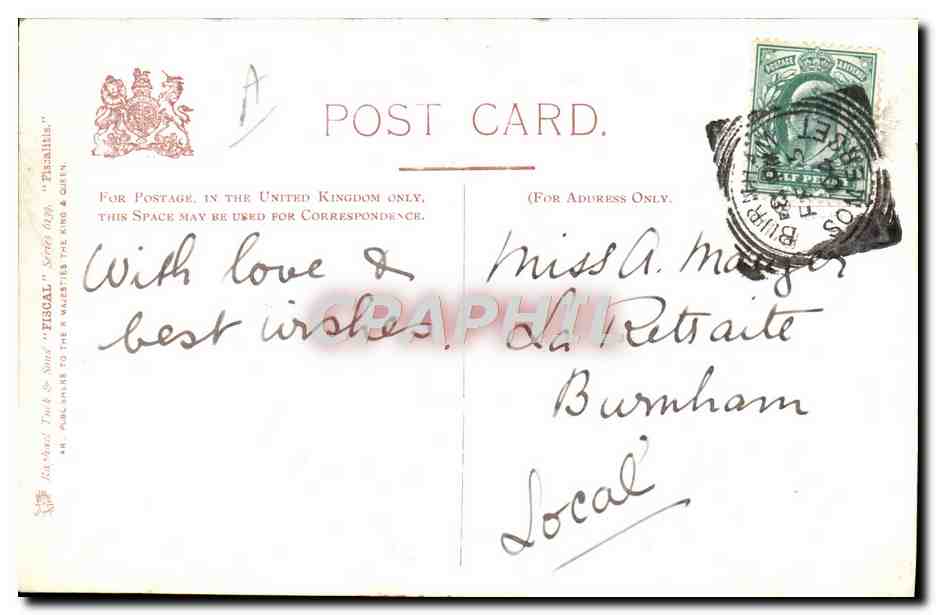 A
POST CARD.
FOR POSTAGE, IN THE UNITED KINGDOM ONLY,
THIS SPACE MAY BE USED FOR CORRESPONDENCE.
(FOR ADDRESS ONLY.
POSTAGE REVENUE
HALF PENNY
BURNHAM
SOMERSET
With love &
best wishes.
Miss A. Manger
La Retraite
Burnham
Local
Raphael Tuck & Sons' "FISCAL" Series 6139. "Fiscalitis."
ART PUBLISHERS TO THEIR MAJESTIES THE KING & QUEEN.
GRAPHII